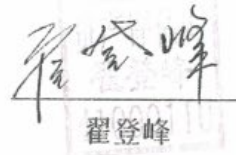 翟登峰
翟登峰